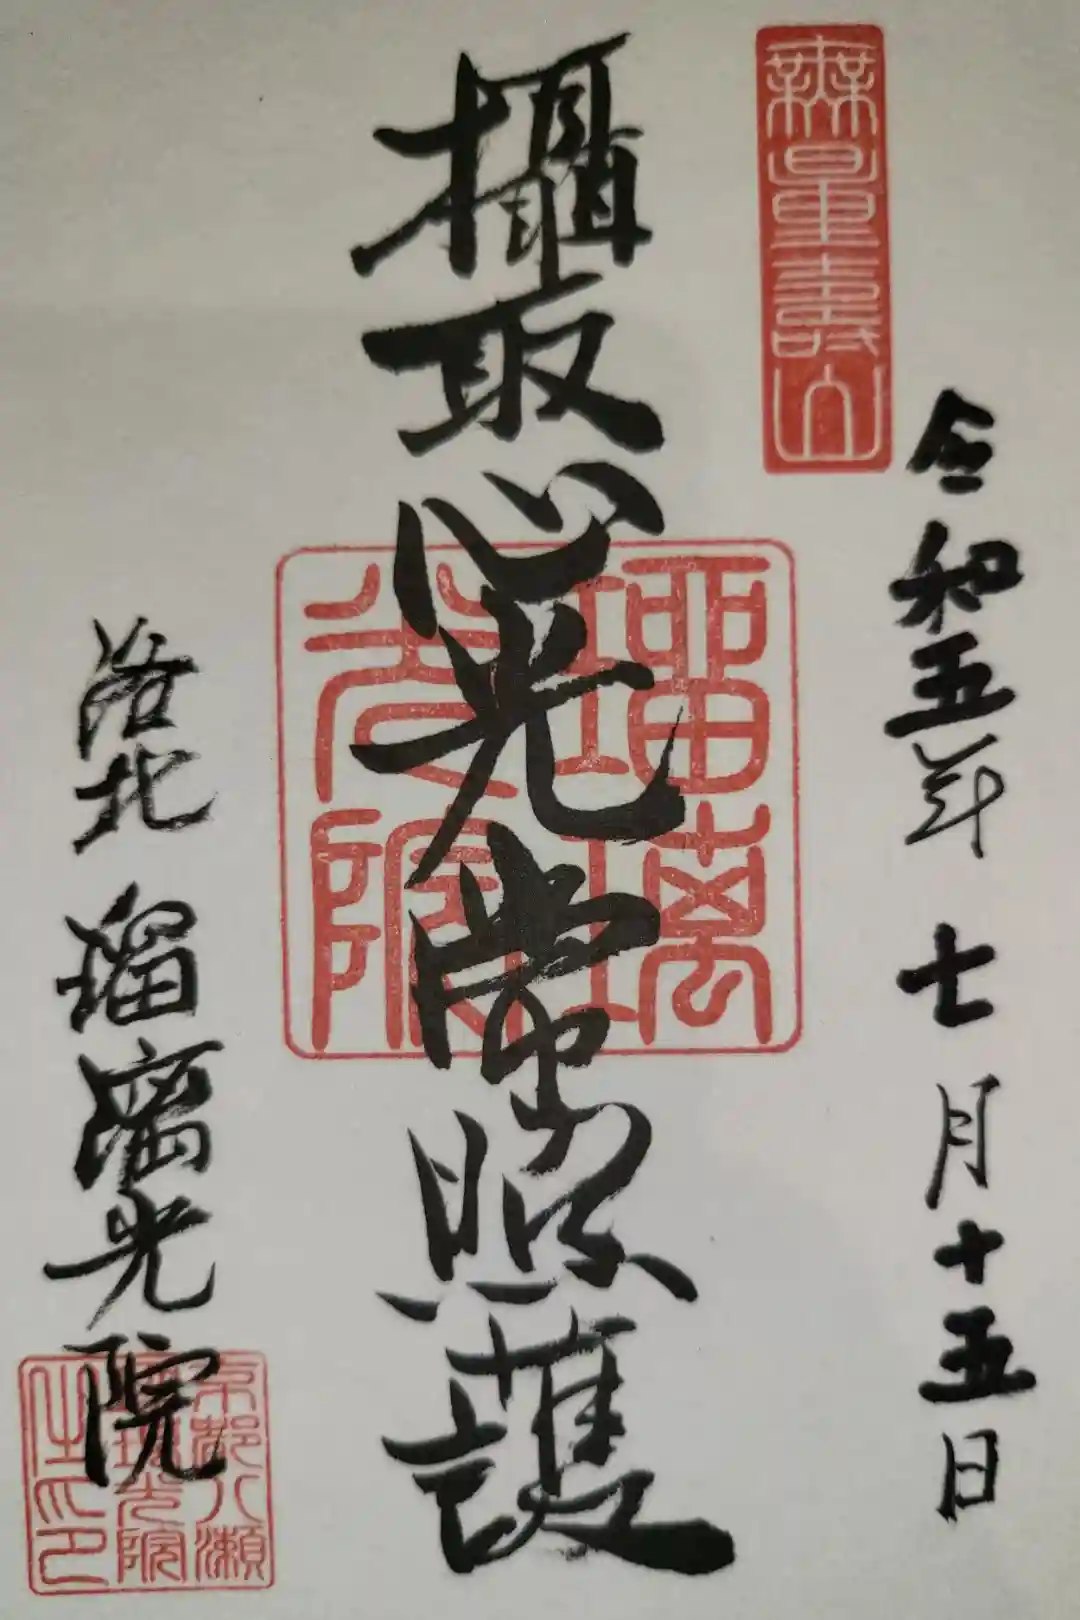 令和五年七月十五日
無量壽山
攝取心光常照護
瑠璃光院
洛北 瑠璃光院
京都八瀬
瑠璃光院
之印